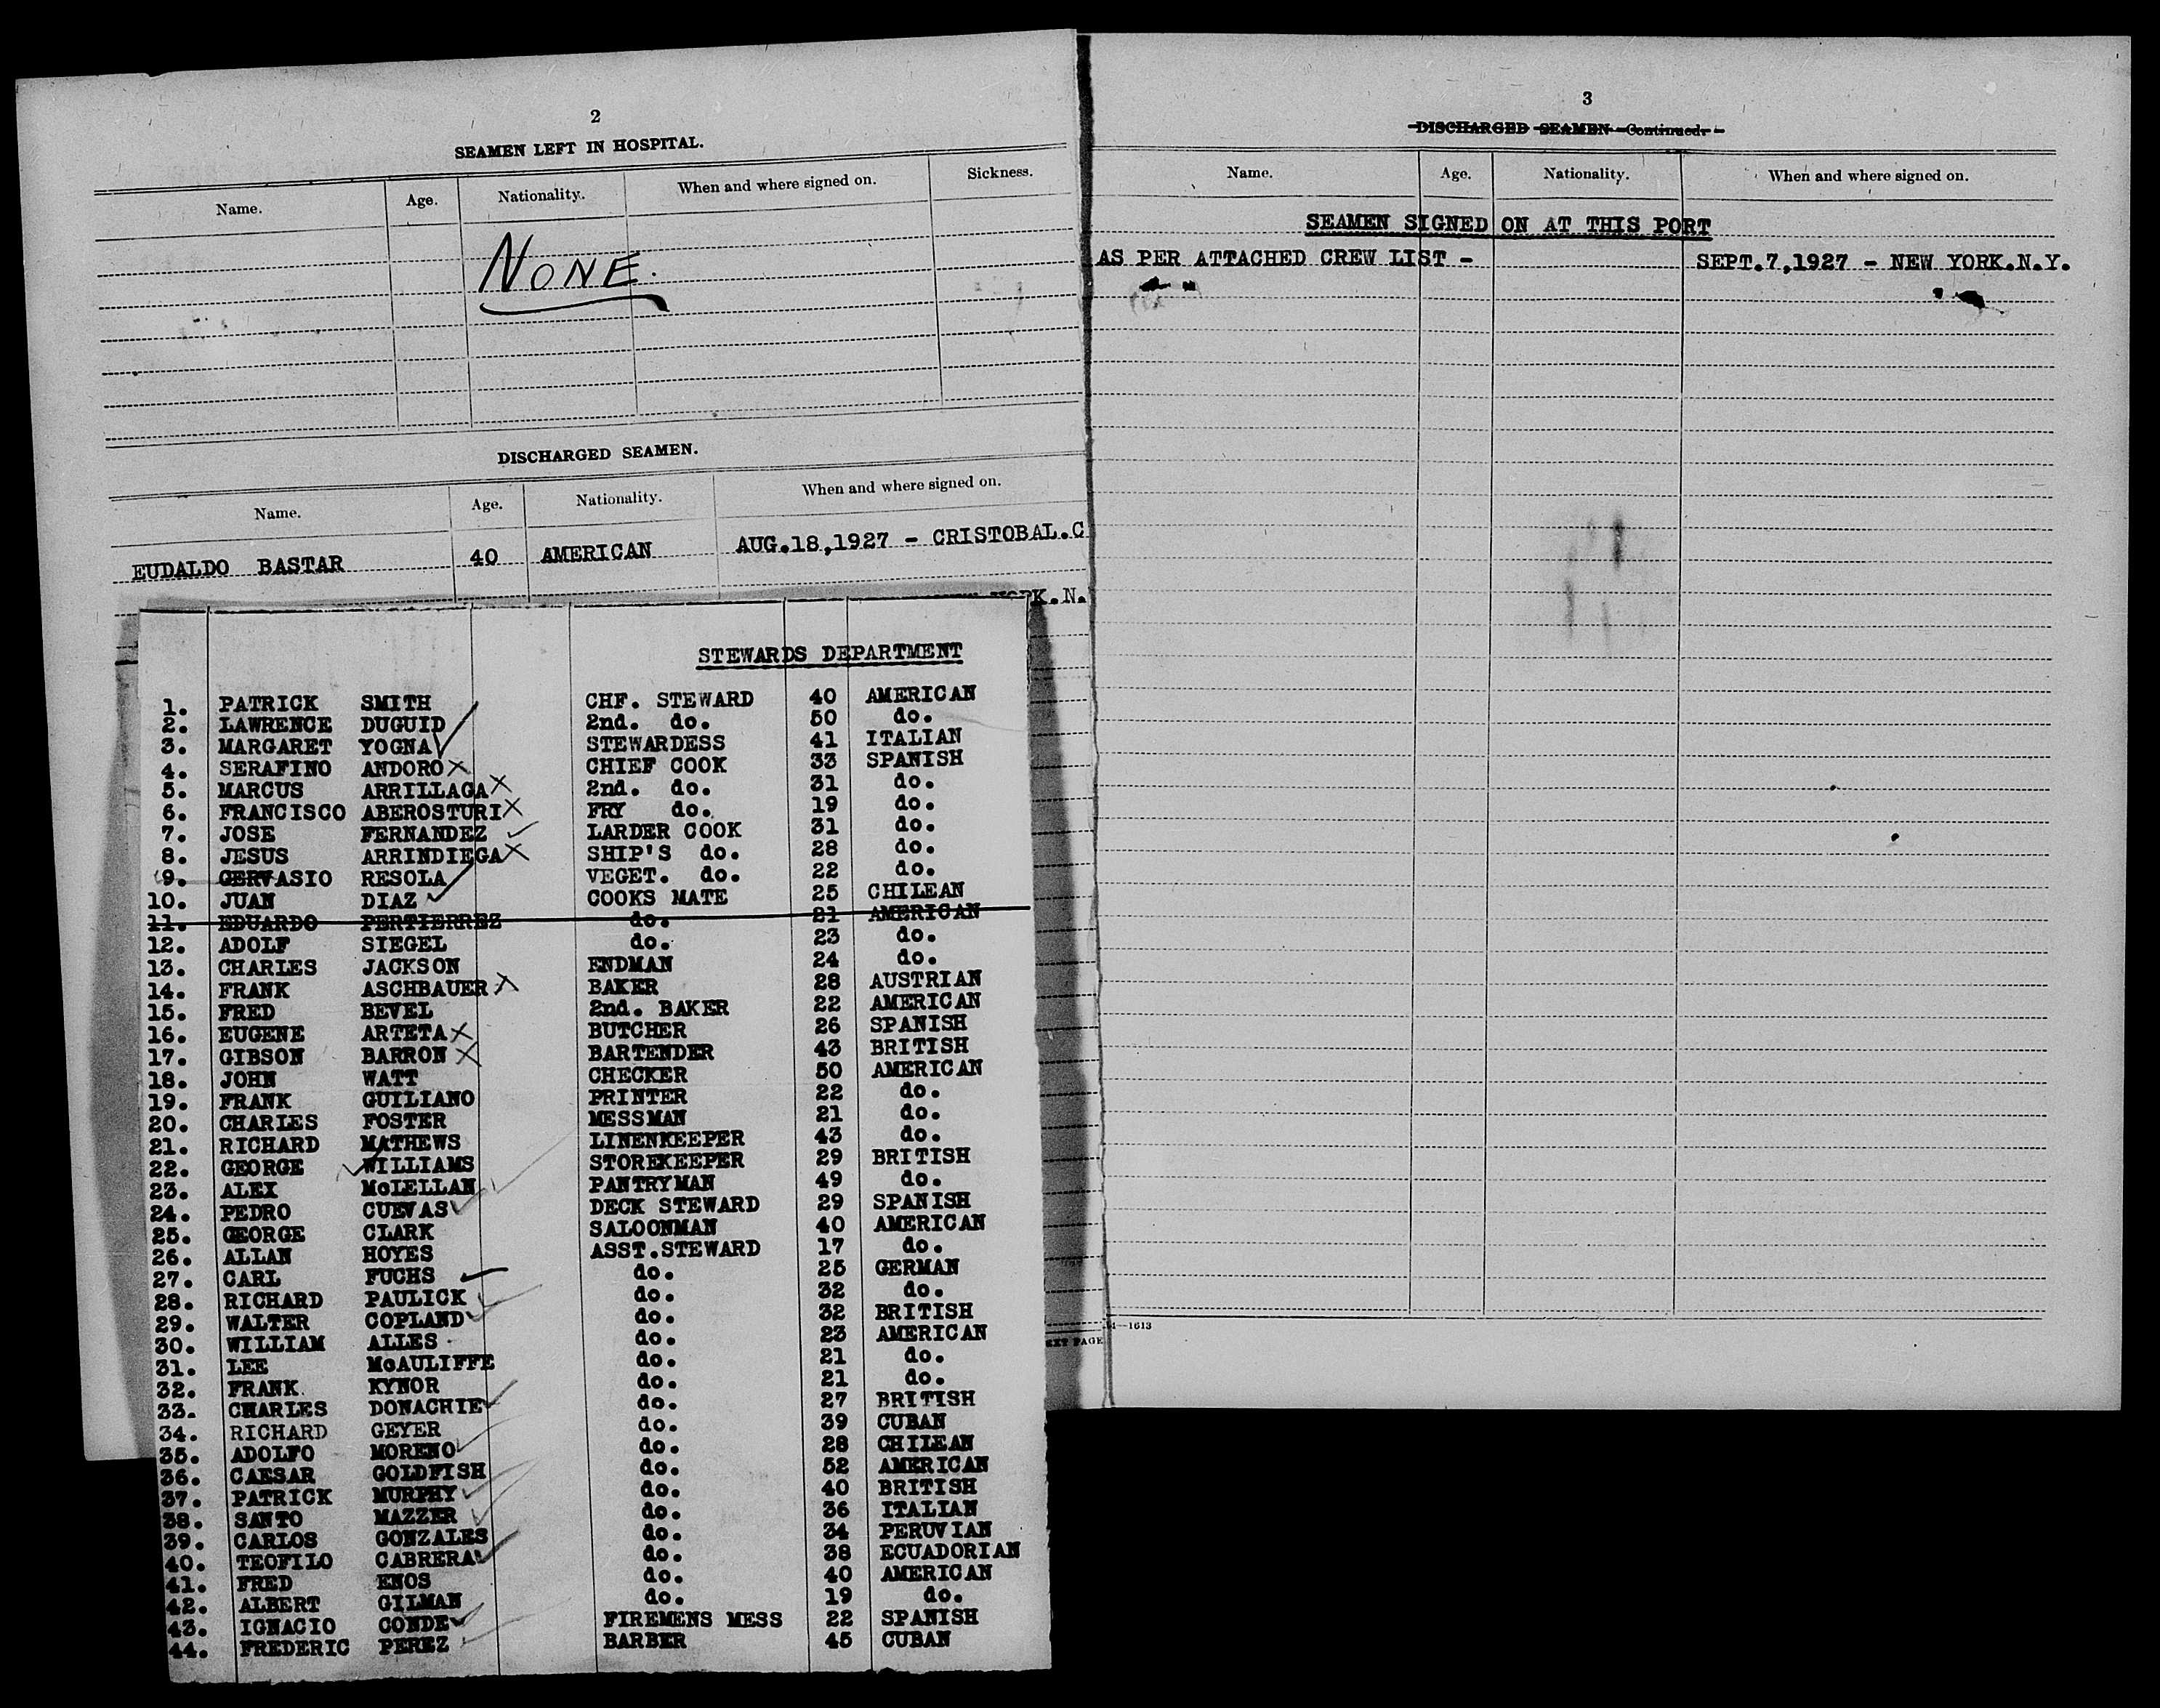 2
SEAMEN LEFT IN HOSPITAL.
Name. Age. Nationality. When and where signed on. Sickness.
NONE.
DISCHARGED SEAMEN.
Name. Age. Nationality. When and where signed on.
EUDALDO BASTAR 40 AMERICAN AUG.18,1927 - CRISTOBAL.C
K.N.
STEWARDS DEPARTMENT
1. PATRICK SMITH CHF. STEWARD 40 AMERICAN
2. LAWRENCE DUGUID 2nd. do. 50 do.
3. MARGARET YOGNA STEWARDESS 41 ITALIAN
4. SERAFINO ANDORO CHIEF COOK 33 SPANISH
5. MARCUS ARRILLAGA 2nd. do. 31 do.
6. FRANCISCO ABEROSTURI FRY do. 19 do.
7. JOSE FERNANDEZ LARDER COOK 31 do.
8. JESUS ARRINDIEGA SHIP'S do. 28 do.
9. GERVASIO RESOLA VEGET. do. 22 do.
10. JUAN DIAZ COOKS MATE 25 CHILEAN
11. EDUARDO PERTIERREZ do. 21 AMERICAN
12. ADOLF SIEGEL do. 23 do.
13. CHARLES JACKSON ENDMAN 24 do.
14. FRANK ASCHBAUER BAKER 28 AUSTRIAN
15. FRED BEVEL 2nd. BAKER 22 AMERICAN
16. EUGENE ARTETA BUTCHER 26 SPANISH
17. GIBSON BARRON BARTENDER 43 BRITISH
18. JOHN WATT CHECKER 50 AMERICAN
19. FRANK GUILIANO PRINTER 22 do.
20. CHARLES FOSTER MESSMAN 21 do.
21. RICHARD MATHEWS LINENKEEPER 43 do.
22. GEORGE WILLIAMS STOREKEEPER 29 BRITISH
23. ALEX McLELLAN PANTRYMAN 49 do.
24. PEDRO CUEVAS DECK STEWARD 29 SPANISH
25. GEORGE CLARK SALOONMAN 40 AMERICAN
26. ALLAN HOYES ASST.STEWARD 17 do.
27. CARL FUCHS do. 25 GERMAN
28. RICHARD PAULICK do. 32 do.
29. WALTER COPLAND do. 32 BRITISH
30. WILLIAM ALLES do. 23 AMERICAN
31. LEE McAULIFFE do. 21 do.
32. FRANK. KYNOR do. 21 do.
33. CHARLES DONACHIE do. 27 BRITISH
34. RICHARD GEYER do. 39 CUBAN
35. ADOLFO MORENO do. 28 CHILEAN
36. CAESAR GOLDFISH do. 52 AMERICAN
37. PATRICK MURPHY do. 40 BRITISH
38. SANTO MAZZER do. 36 ITALIAN
39. CARLOS GONZALES do. 34 PERUVIAN
40. TEOFILO CABRERA do. 38 ECUADORIAN
41. FRED ENOS do. 40 AMERICAN
42. ALBERT GILMAN do. 19 do.
43. IGNACIO CONDE FIREMENS MESS 22 SPANISH
44. FREDERIC PEREZ BARBER 45 CUBAN
PAGE
3
DISCHARGED SEAMEN—Continued.
Name. Age. Nationality. When and where signed on.
SEAMEN SIGNED ON AT THIS PORT
AS PER ATTACHED CREW LIST - SEPT.7,1927 - NEW YORK.N.Y.
—1613